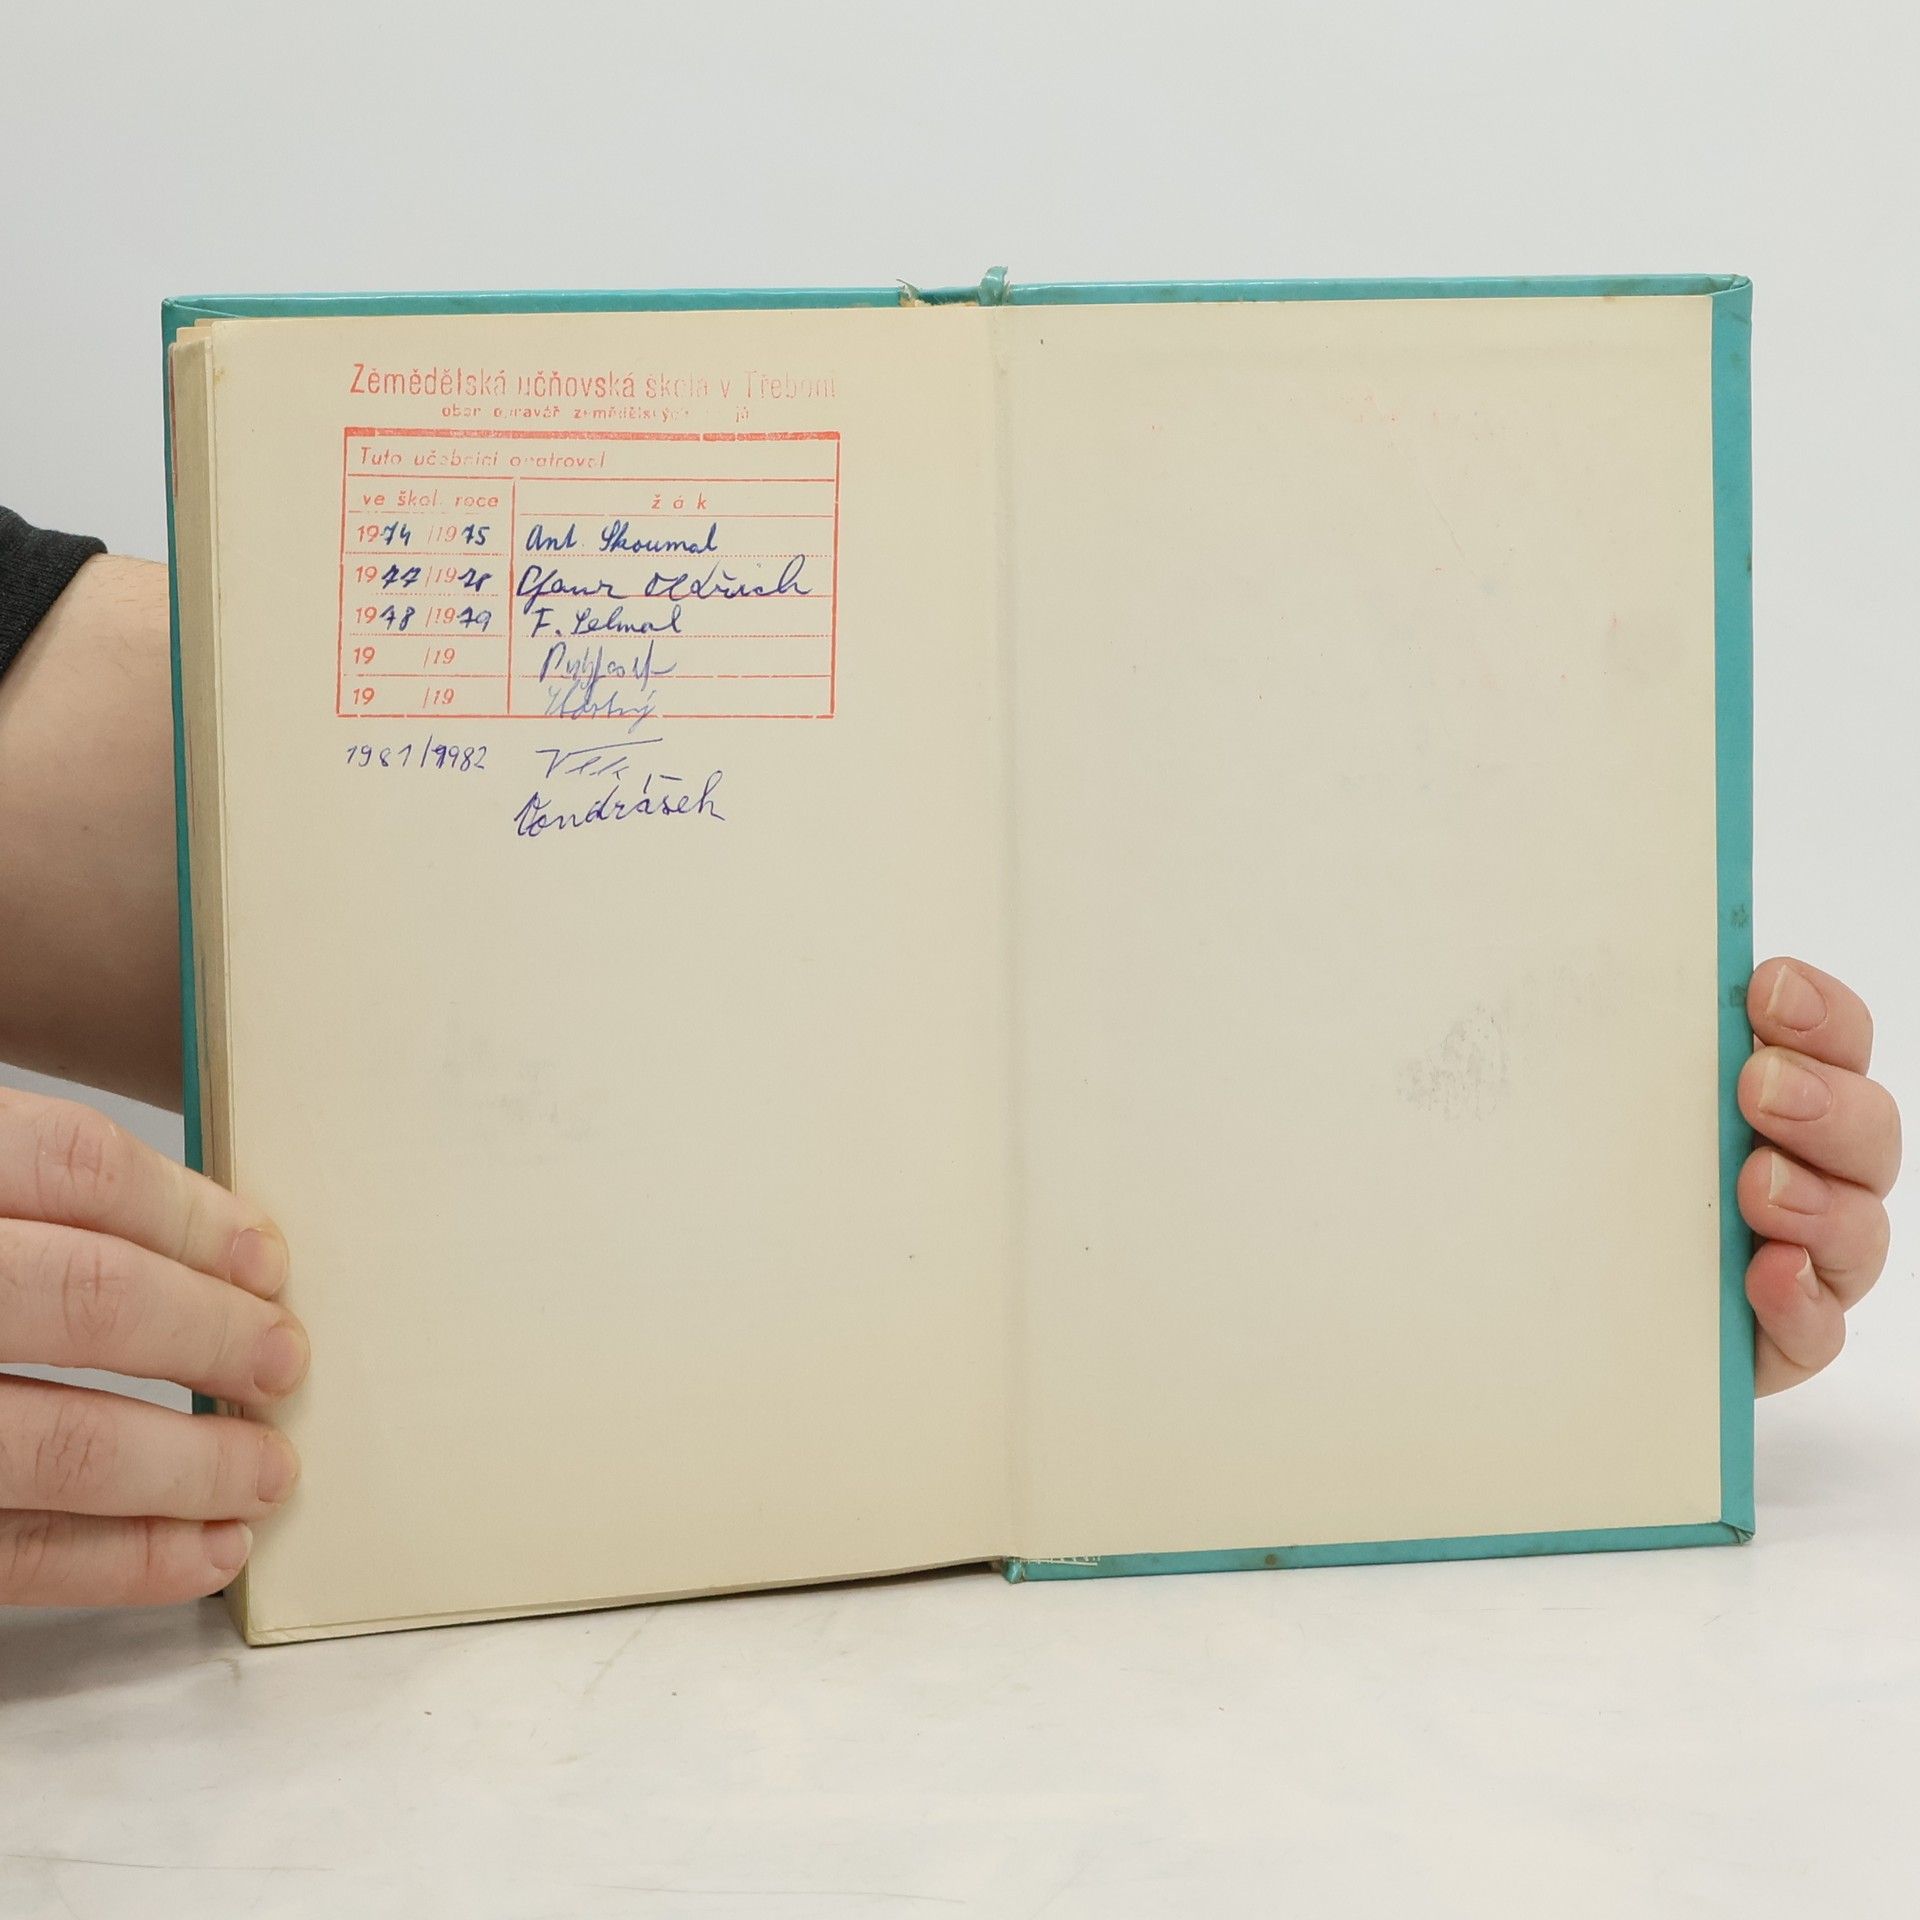 Zemědělská učňovská škola v Třeboni
obor opravář zemědělských
Tuto učebnici opatroval
ve škol. roce žák
1974/1975 Ant. Skoumal
1977/1978 Oldřich
1978/1979 F. Selmal
19 /19
19 /19 Šťastný
1981/1982 Vlk
Vondrášek